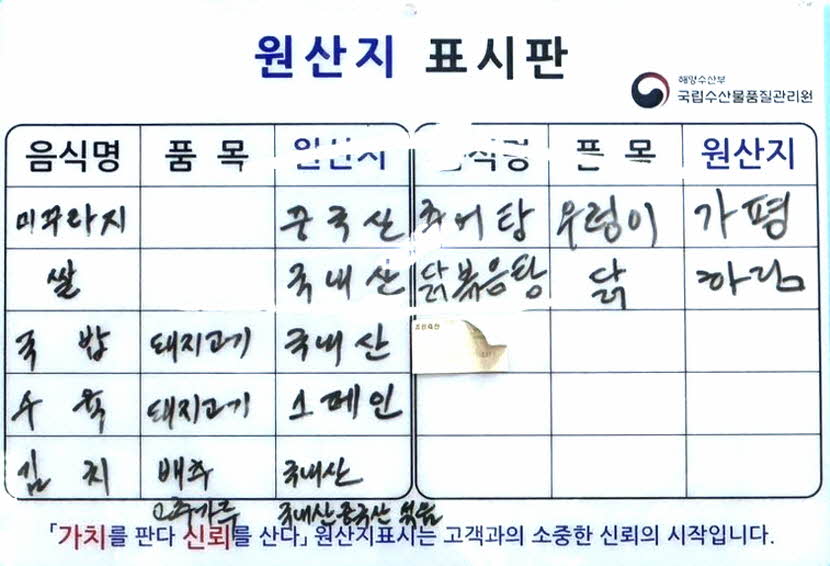 원산지 표시판
해양수산부
국립수산물품질관리원
음식명 품 목 원산지 음식명 품 목 원산지
미꾸라지 중국산 추어탕 우렁이 가평
쌀 국내산 닭볶음탕 닭 하림
국 밥 돼지고기 국내산
수 육 돼지고기 스페인
김 치 배추 국내산
고추가루 국내산 중국산 섞음
「가치를 판다 신뢰를 산다」 원산지표시는 고객과의 소중한 신뢰의 시작입니다.